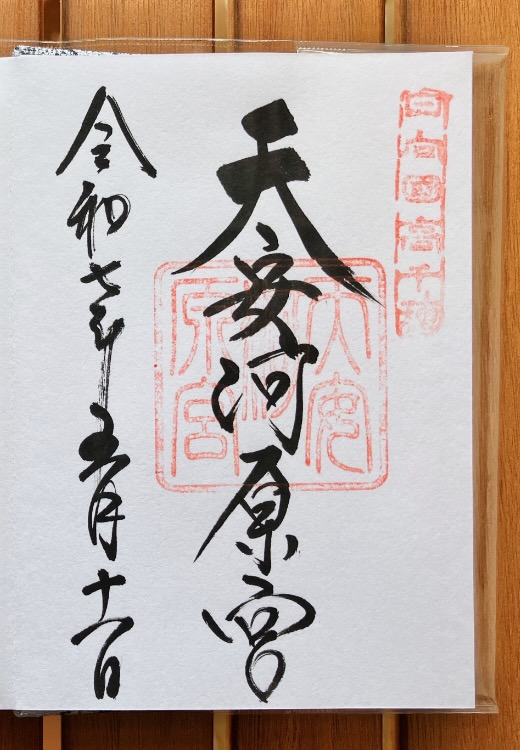 日向國高千穂
天安河原宮
天安河原宮
令和七年五月十八日